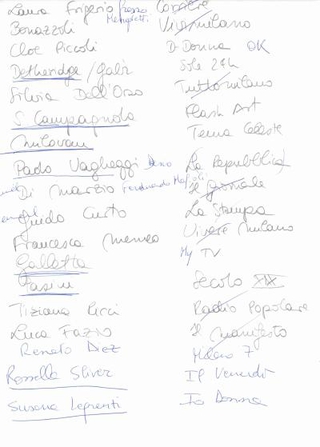 Laura Frigerio Rosso Corriere
Bonazzoli Meneghetti Vivimilano
Cloe Piccoli D Donna OK
Detheridge / Gabi Sole 24h
Silvia Dell'Orso Tuttomilano
S Campagnola Flash Art
Milovani Tema Celeste
Paolo Vagheggi La Repubblica
Di Marzio Ferdinando Il Giornale
Guido Curto La Stampa
Francesca Vivere Milano
Galletta My TV
Fasini Secolo XIX
Tiziana Ricci Radio Popolare
Luca Fazio Il Manifesto
Renato Diez Milano 7
Rossella Slivez Il Venerdì
Susana Legrenti Io Donna